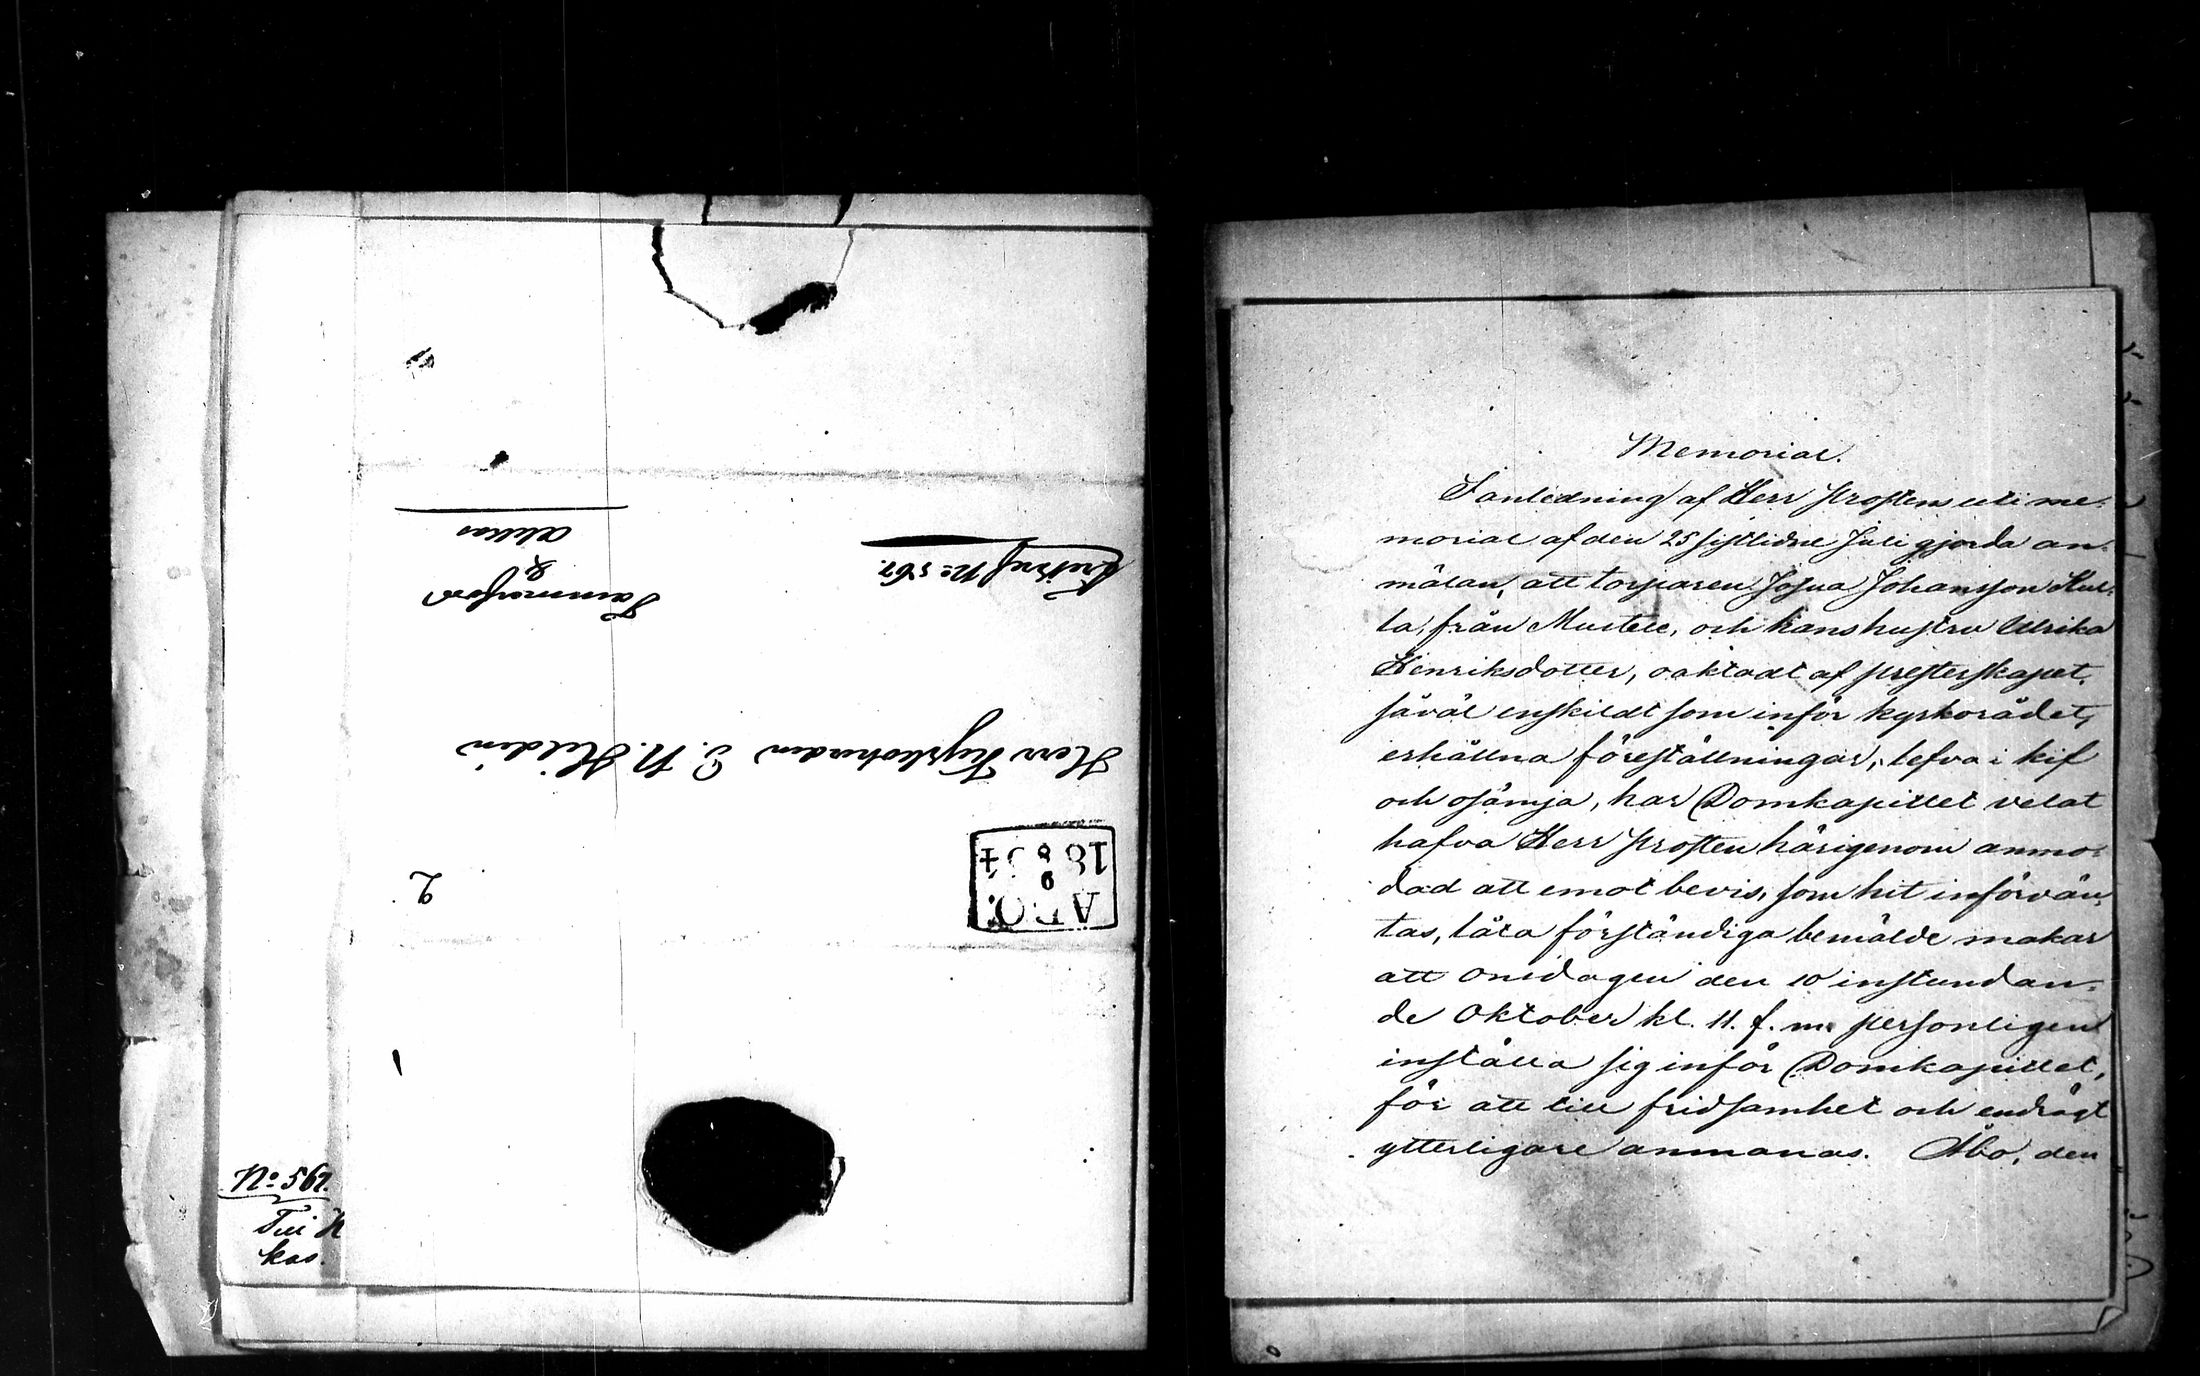 Herr Kyrkoherden I. N. Helén
Tammerfors
&
Akkas
N:o 567.
ABO.
9
18 8/ 54
2
N:o 567.
Till K
kas.
Memorial.
I anledning af Herr Prostens uti me-
morial af den 25 sistlidne Juli gjorda an-
mälan, att torparen Josua Johansson Kul-
la, från Mustele, och hans hustru Ulrika
Henriksdotter, oaktadt af presterskapet,
såväl enskildt som inför kyrkorådet,
erhållna föreställningar, lefva i kif
och osämja, har Domkapitlet velat
hafva Herr Prosten härigenom anmo-
dad att emot bevis, som hit införvän-
tas, låta förständiga bemälde makar
att onsdagen den 10 instundan-
de Oktober kl. 11. f. m. personligen
inställa sig inför Domkapitlet,
för att till fridsamhet och endrägt
ytterligare anmanas. Åbo, den